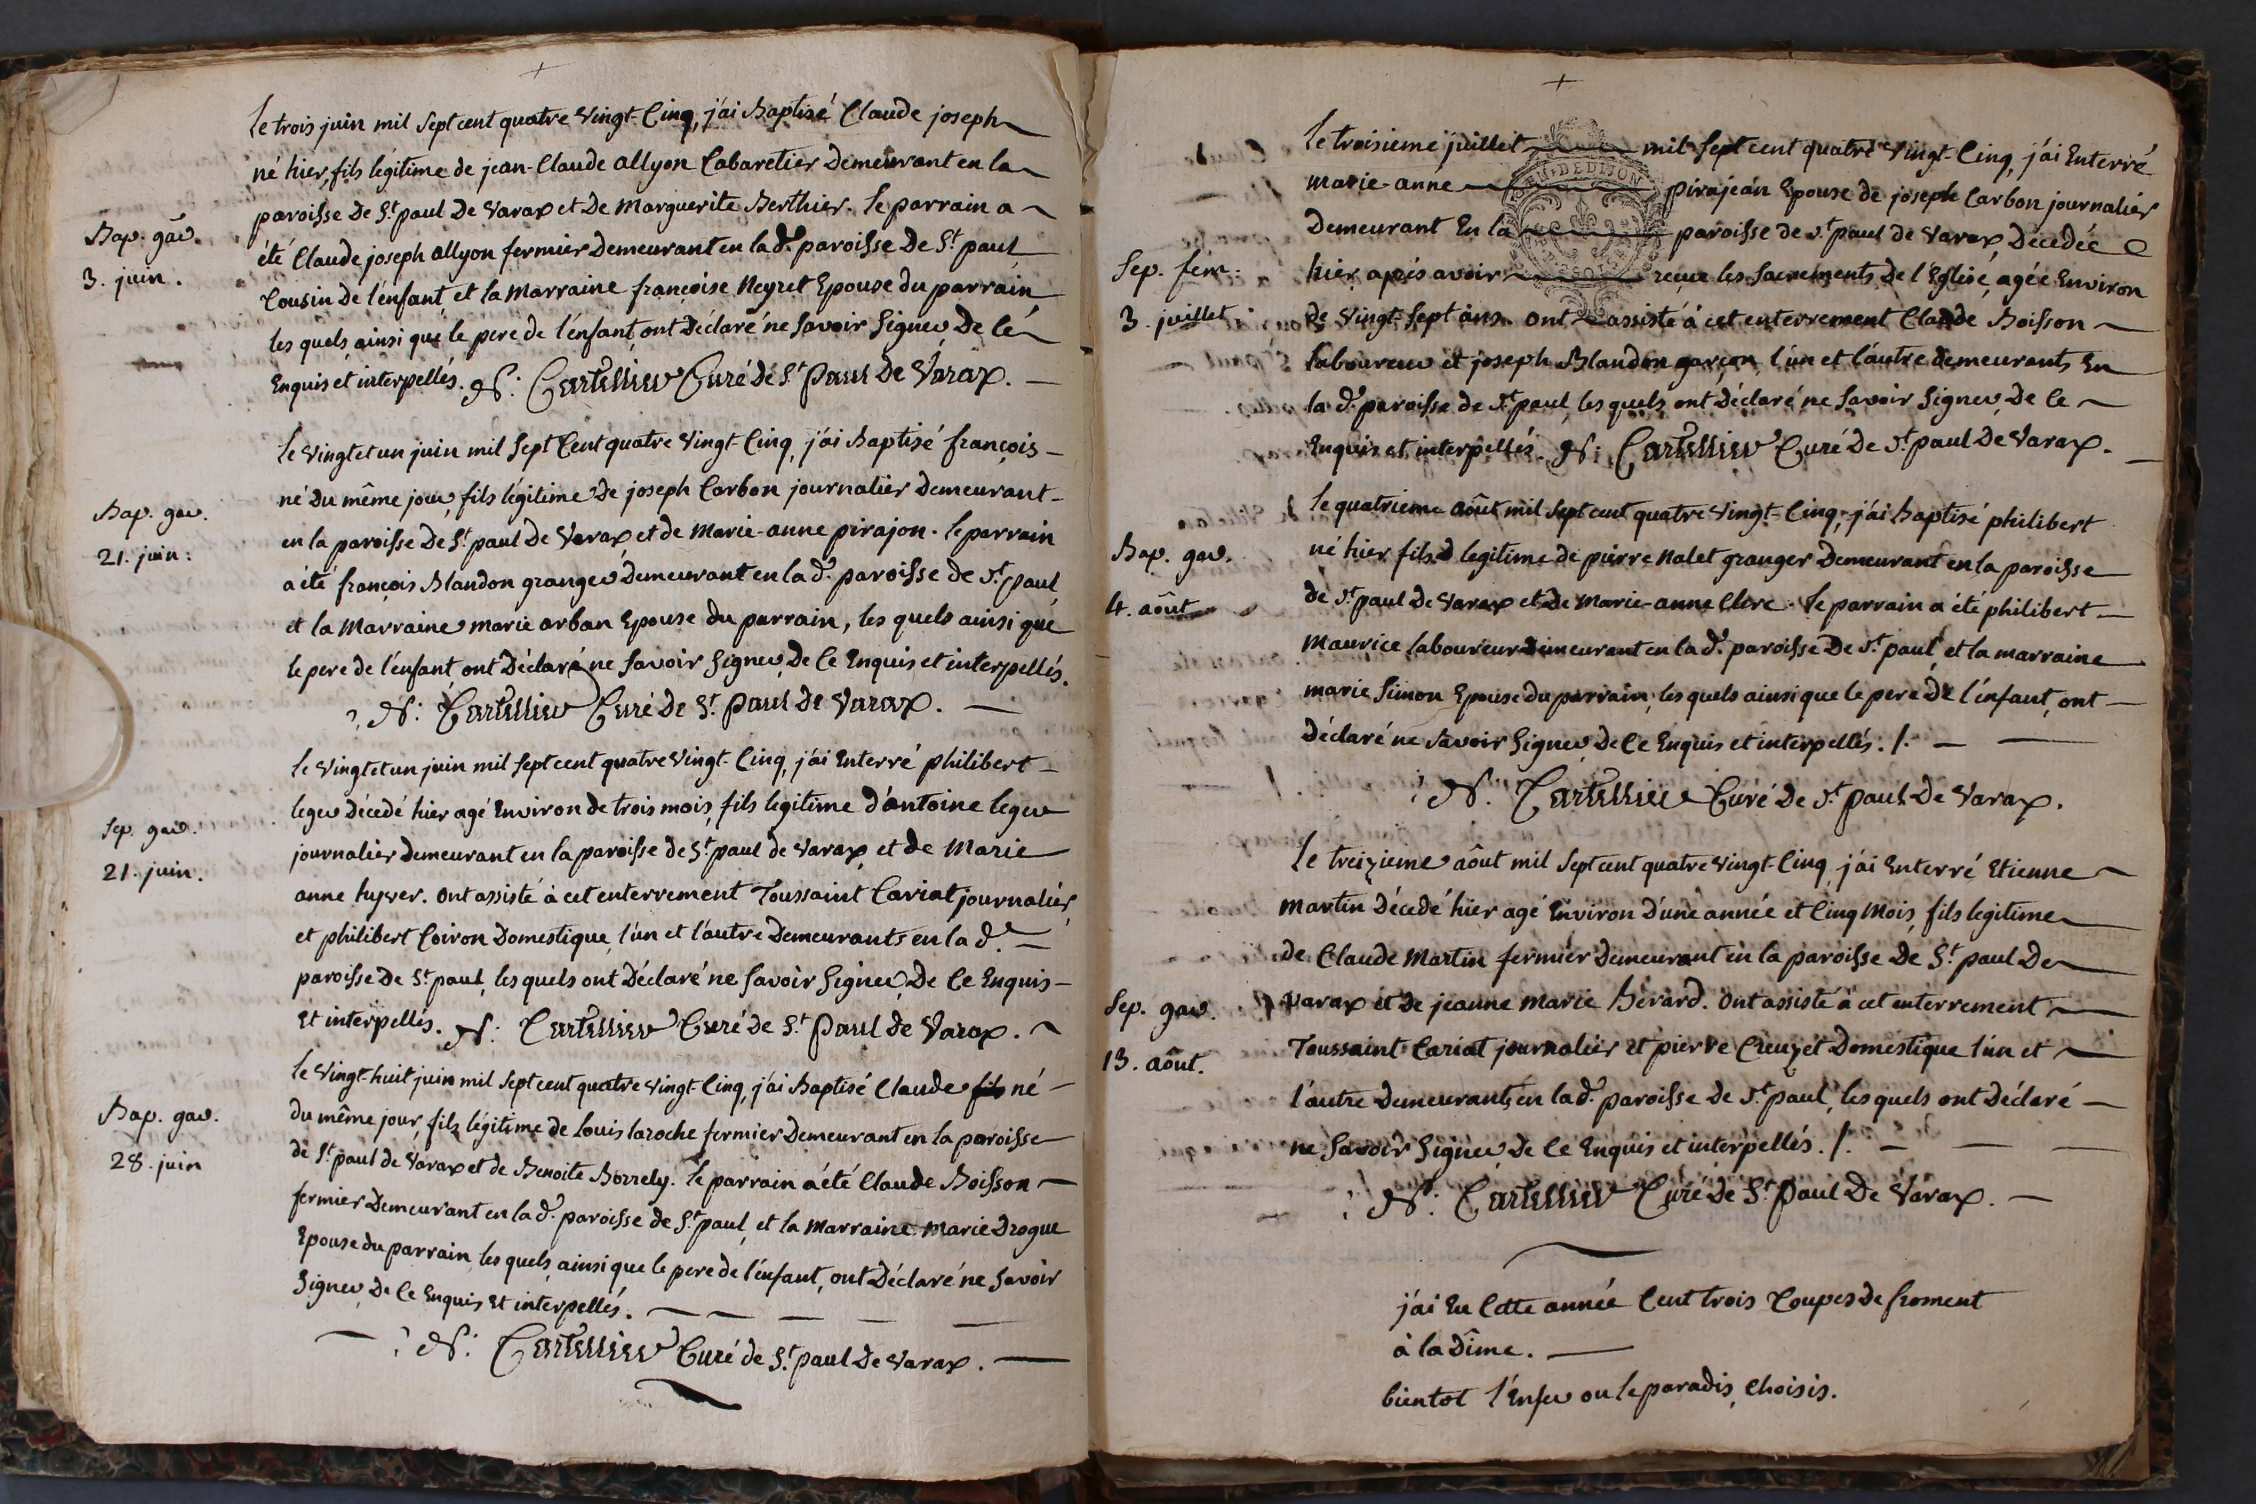 Le trois juin mil Sept cent quatre Vingt-Cinq, j'ai Baptisé Claude joseph
né hier, fils légitime de jean-Claude allyon Cabaretier Demeurant en la
paroisse De St. paul De Varax et De Marguerite Berthier. le parrain a
Bap. gar.
3. juin.
été Claude joseph allyon fermier Demeurant en la de. paroisse De St. paul
Cousin de l'enfant et la Marraine françoise Neyret Epouse du parrain
les quels ainsi que le pere de l'enfant, ont Déclaré ne Savoir Signer De Ce
Enquis et interpellés. N: Cartellier Curé de St. Paul De Varax.
Le Vingt et un juin mil Sept Cent quatre Vingt-Cinq, j'ai Baptisé françois
né Du même jour, fils légitime De joseph Carbon journalier Demeurant
Bap. gar.
21. juin:
en la paroisse De St. paul De Varax et de Marie-anne pirajon. le parrain
a été françois Blandon granger Demeurant en la de. paroisse de St. paul,
et la Marraine marie arban Epouse du parrain, les quels ainsi que
le pere de l'enfant ont Déclaré ne Savoir Signer De Ce Enquis et interpellés.
N: Cartellier Curé De St. Paul De Varax.
Le Vingt et un juin mil Sept cent quatre Vingt-Cinq, j'ai Enterré philibert
leger Décedé hier agé Environ de trois mois, fils legitime d'antoine leger
Sep. gar.
21. juin.
journalier Demeurant en la paroisse de St. paul de Varax et de Marie
anne hyver. Ont assisté à cet enterrement Toussaint Cariat journalier,
et philibert Coiron Domestique, l'un et l'autre Demeurants en la de.
paroisse De St. paul, les quels ont Déclaré ne Savoir Signer De Ce Enquis
Et interpellés. N: Cartellier Curé de St. Paul de Varax.
Le Vingt-huit juin mil Sept cent quatre Vingt-Cinq, j'ai Baptisé Claude fils né
Bap. gar.
28. juin
du même jour, fils légitime de Louis laroche fermier Demeurant en la paroisse
de St. paul de Varax et de Benoite Borrely. le parrain a été Claude Boisson
fermier Demeurant en la de. paroisse de St. paul, et la Marraine Marie Drogue
Epouse du parrain, les quels, ainsi que le pere de l'enfant, ont Déclaré ne Savoir
Signer, De Ce Enquis Et interpellés.
N: Cartellier Curé de St. paul De Varax.
Le troisieme juillet mil Sept cent quatre Vingt-Cinq, j'ai Enterré
marie-anne pirajean Epouse de joseph Carbon journalier
Demeurant En la paroisse de St. paul de Varax Décedée
Sep. fém:
3. juillet.
hier, après avoir recue les Sacrements de l'Eglise, agée Environ
de Vingt-Sept ans. ont assisté à cet enterrement Claude Boisson
laboureur et joseph Blandon garçon, l'un et l'autre demeurants En
la de. paroisse de St. paul, les quels ont Déclaré ne Savoir Signer, De Ce
Enquis et interpellés. N: Cartellier Curé De St. paul De Varax.
Le quatrieme aôut mil Sept cent quatre Vingt-Cinq, j'ai Baptisé philibert
Bap. gar.
4. aôut
né hier fils legitime de pierre Nalet granger Demeurant en la paroisse
de St. paul De Varax et De Marie-anne Clere. le parrain a été philibert
Maurice laboureur Demeurant en la de. paroisse De St. paul, et la marraine
marie Simon Epouse du parrain, les quels ainsi que le pere De l'enfant, ont
Déclaré ne Savoir Signer, De Ce Enquis et interpellés. /.
N: Cartellier Curé de St. paul De Varax.
Le treizieme aôut mil Sept cent quatre Vingt-Cinq, j'ai Enterré Etienne
Martin Décedé hier agé Environ D'une année et Cinq Mois, fils legitime
de Claude Martin fermier Demeurant en la paroisse De St. paul De
Sep. gar.
13. aôut.
Varax et De jeanne Marie Bérard. Ont assisté à cet enterrement
Toussaint Cariat journalier et pierre Creuzet Domestique l'un et
l'autre Demeurants en la de. paroisse de St. paul, les quels ont Déclaré
ne Savoir Signer De Ce Enquis et interpellés. /.
N: Cartellier Curé de St. Paul De Varax.
j'ai Eu Cette année Cent trois Coupes de froment
à la Dîme.
bientot l'Enfer ou le paradis, Choisis.